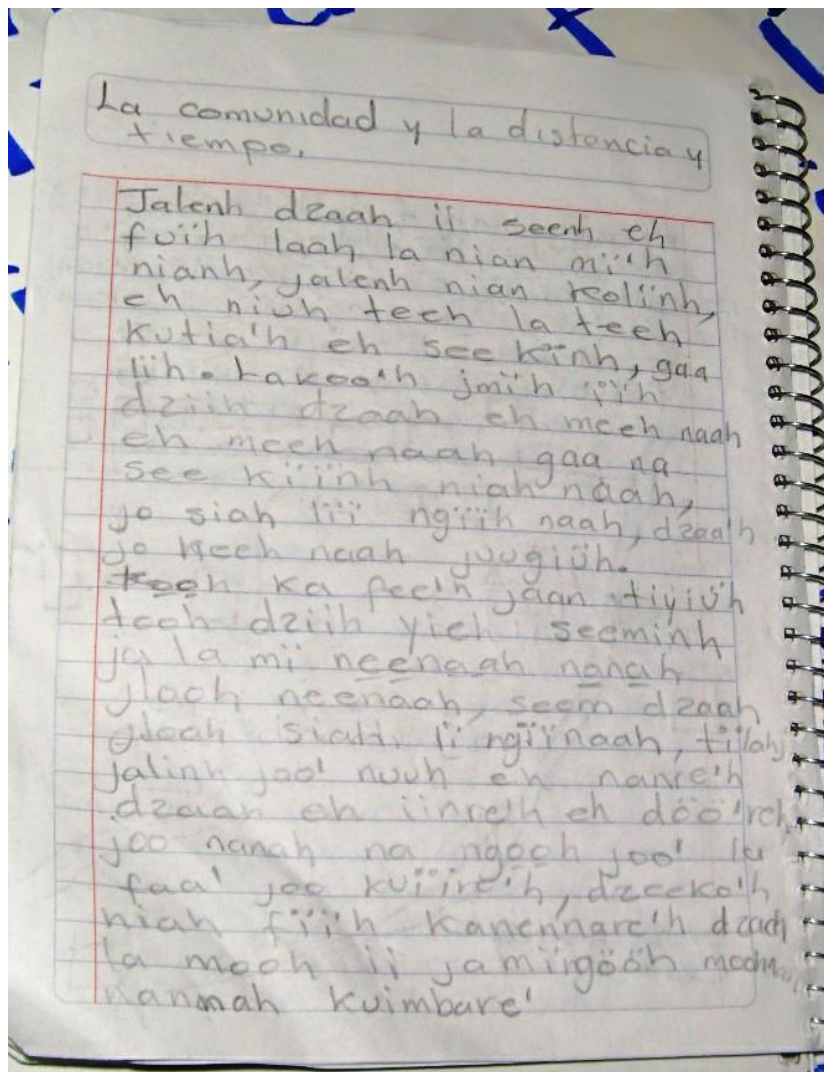 La comunidad y la distancia y
tiempo.
Jalenh dzaah ii seenh eh
fuïh laah la nian mï'h
nianh, jalenh nian kolïnh,
eh niuh teeh la teeh
kutia'h eh see kïnh, gaa
lïh. Lakoo'h jmïh ïï'h
dziih dzaah eh meeh naah
eh meeh naah gaa na
see kïïnh niah naah,
jo siah lïï ngïïh naah, dzaa'h
jo keeh naah juugiüh.
kooh ka fee'h jaan tiyiü'h
tooh dziih yieh seeminh
ja la mi neenaah nanah
jlaoh neenaah, seem dzaah
siah lï ngïïnaah,
jalinh joo' nuuh eh nanre'h
dzaah eh iinre'h eh döö'reh,
joo nanah na ngooh joo' la
faa' joo kuïïre'h, dzeeko'h
niah fïï'h kanennare'h dzach
la mooh ii jamïïngööh
nanmah kuimbare'